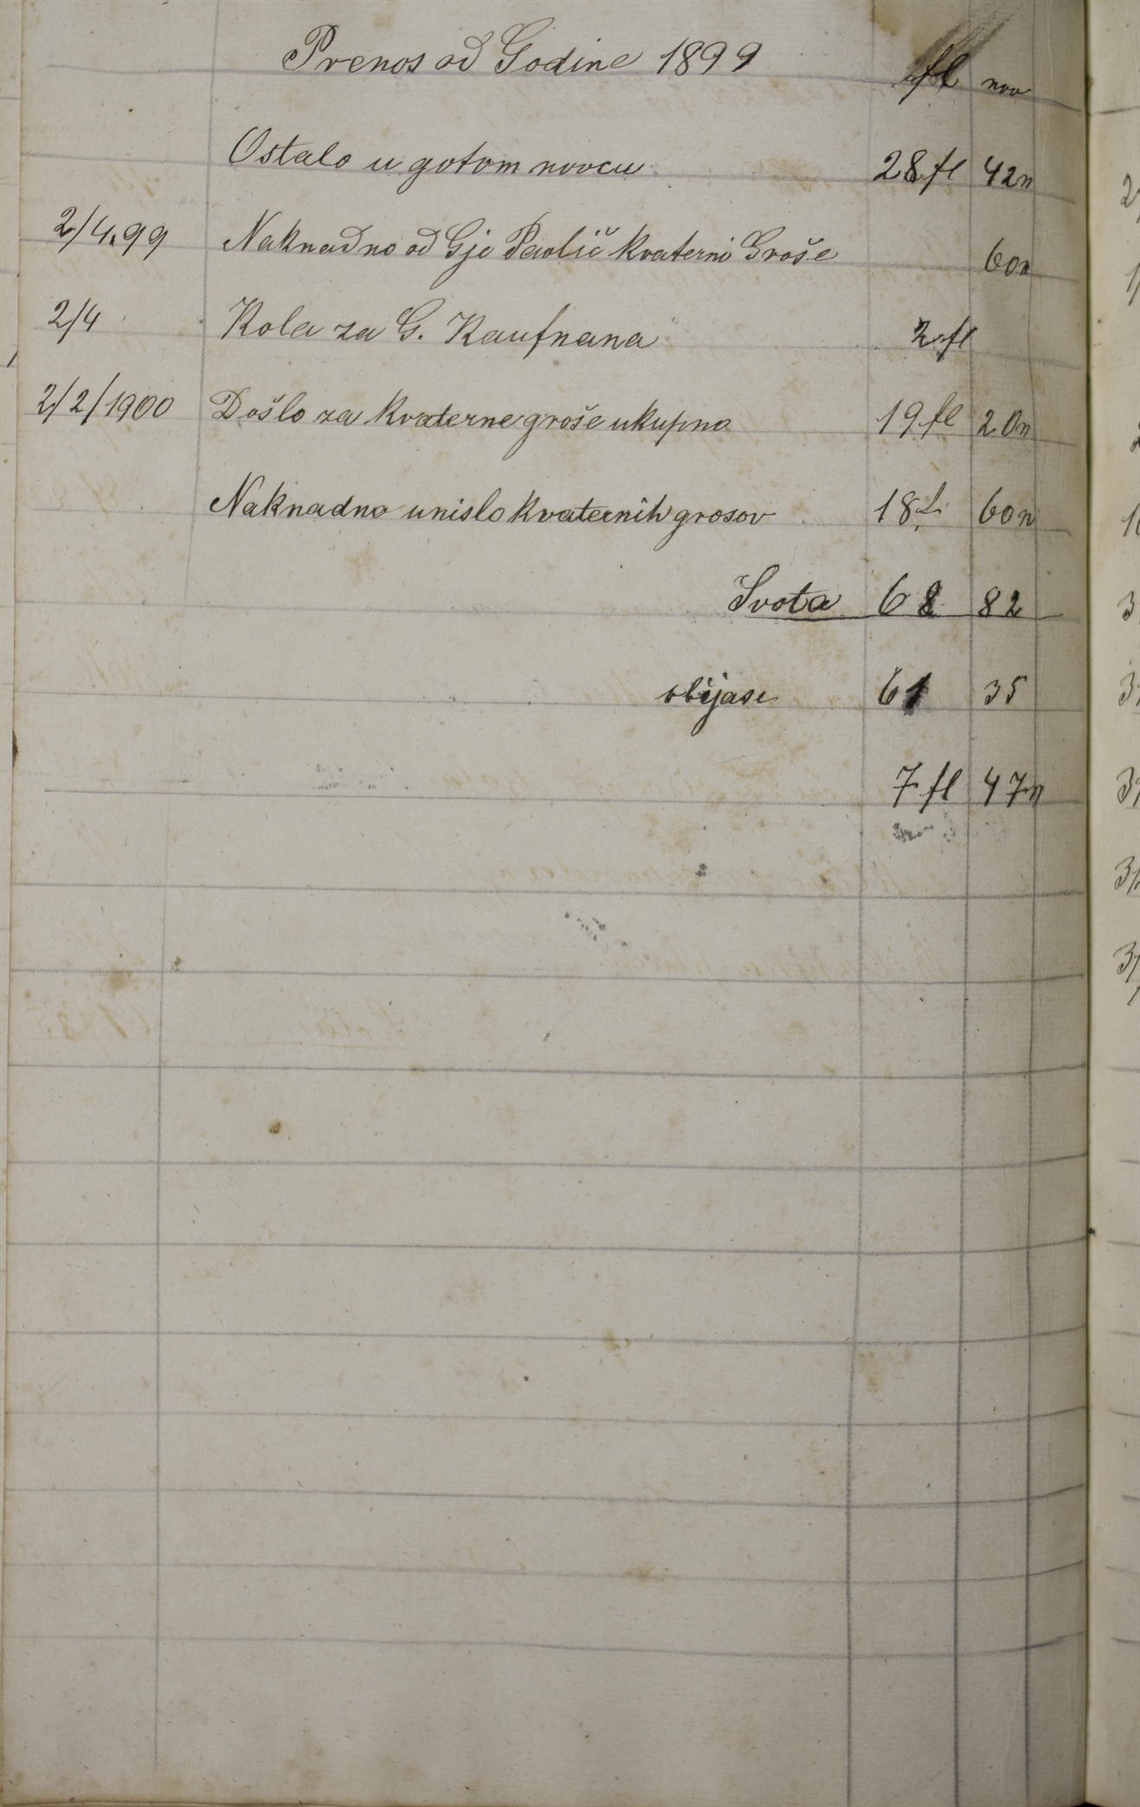 Prenos od Godine 1899 fl nov
Ostalo u gotom novcu 28 fl 42n
2/4.99 Naknadno od Gje Pavlič kvaterni Groše 60n
2/4 Kola za G. Kaufnana 2 fl
2/2/1900 Došlo za kvaterne groše ukupno 19 fl 20n
Naknadno unislo kvaternih grosov 18 fl 60n
Svota 68 82
61 35
7 fl 47n